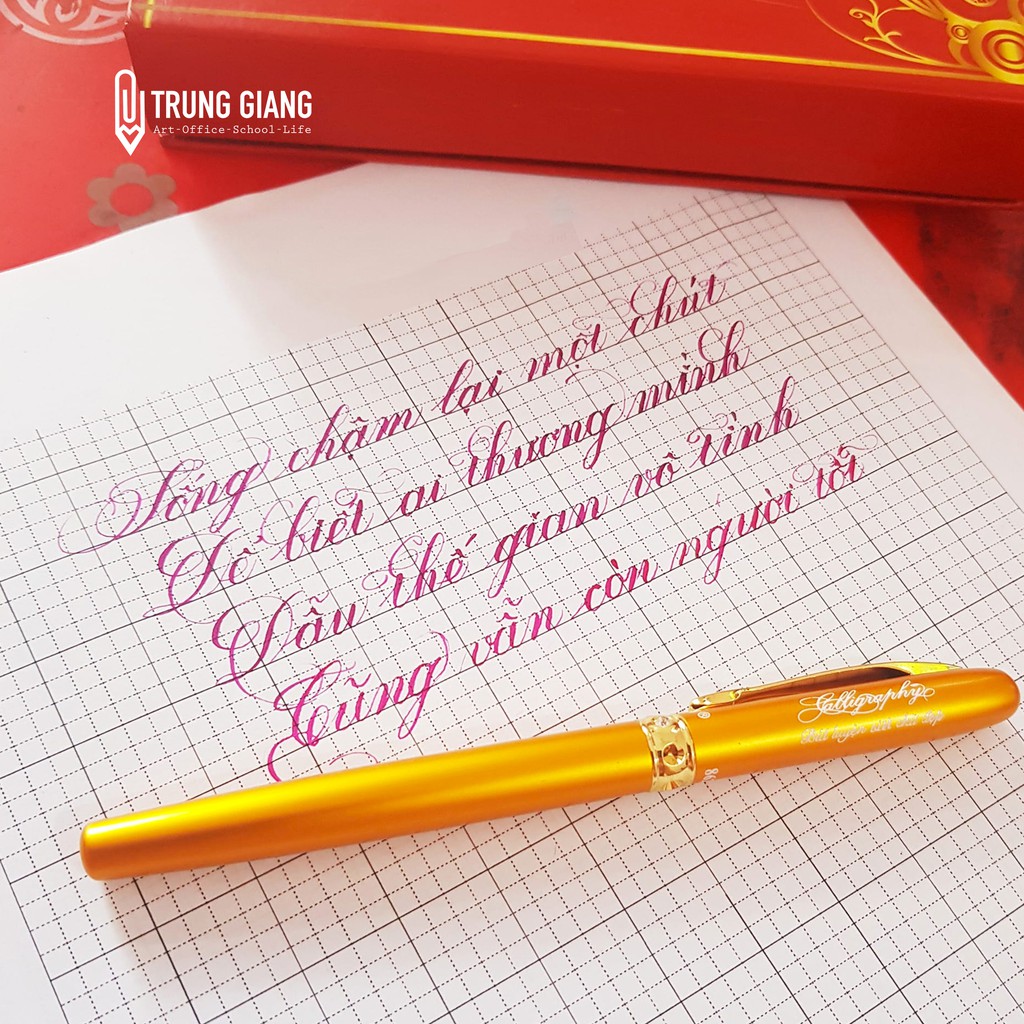 TRUNG GIANG
Art-Office-School-Life
Sống chậm lại một chút
Để biết ai thương mình
Dẫu thế gian vô tình
Cũng vẫn còn người tốt
Calligraphy
Bút luyện viết chữ đẹp